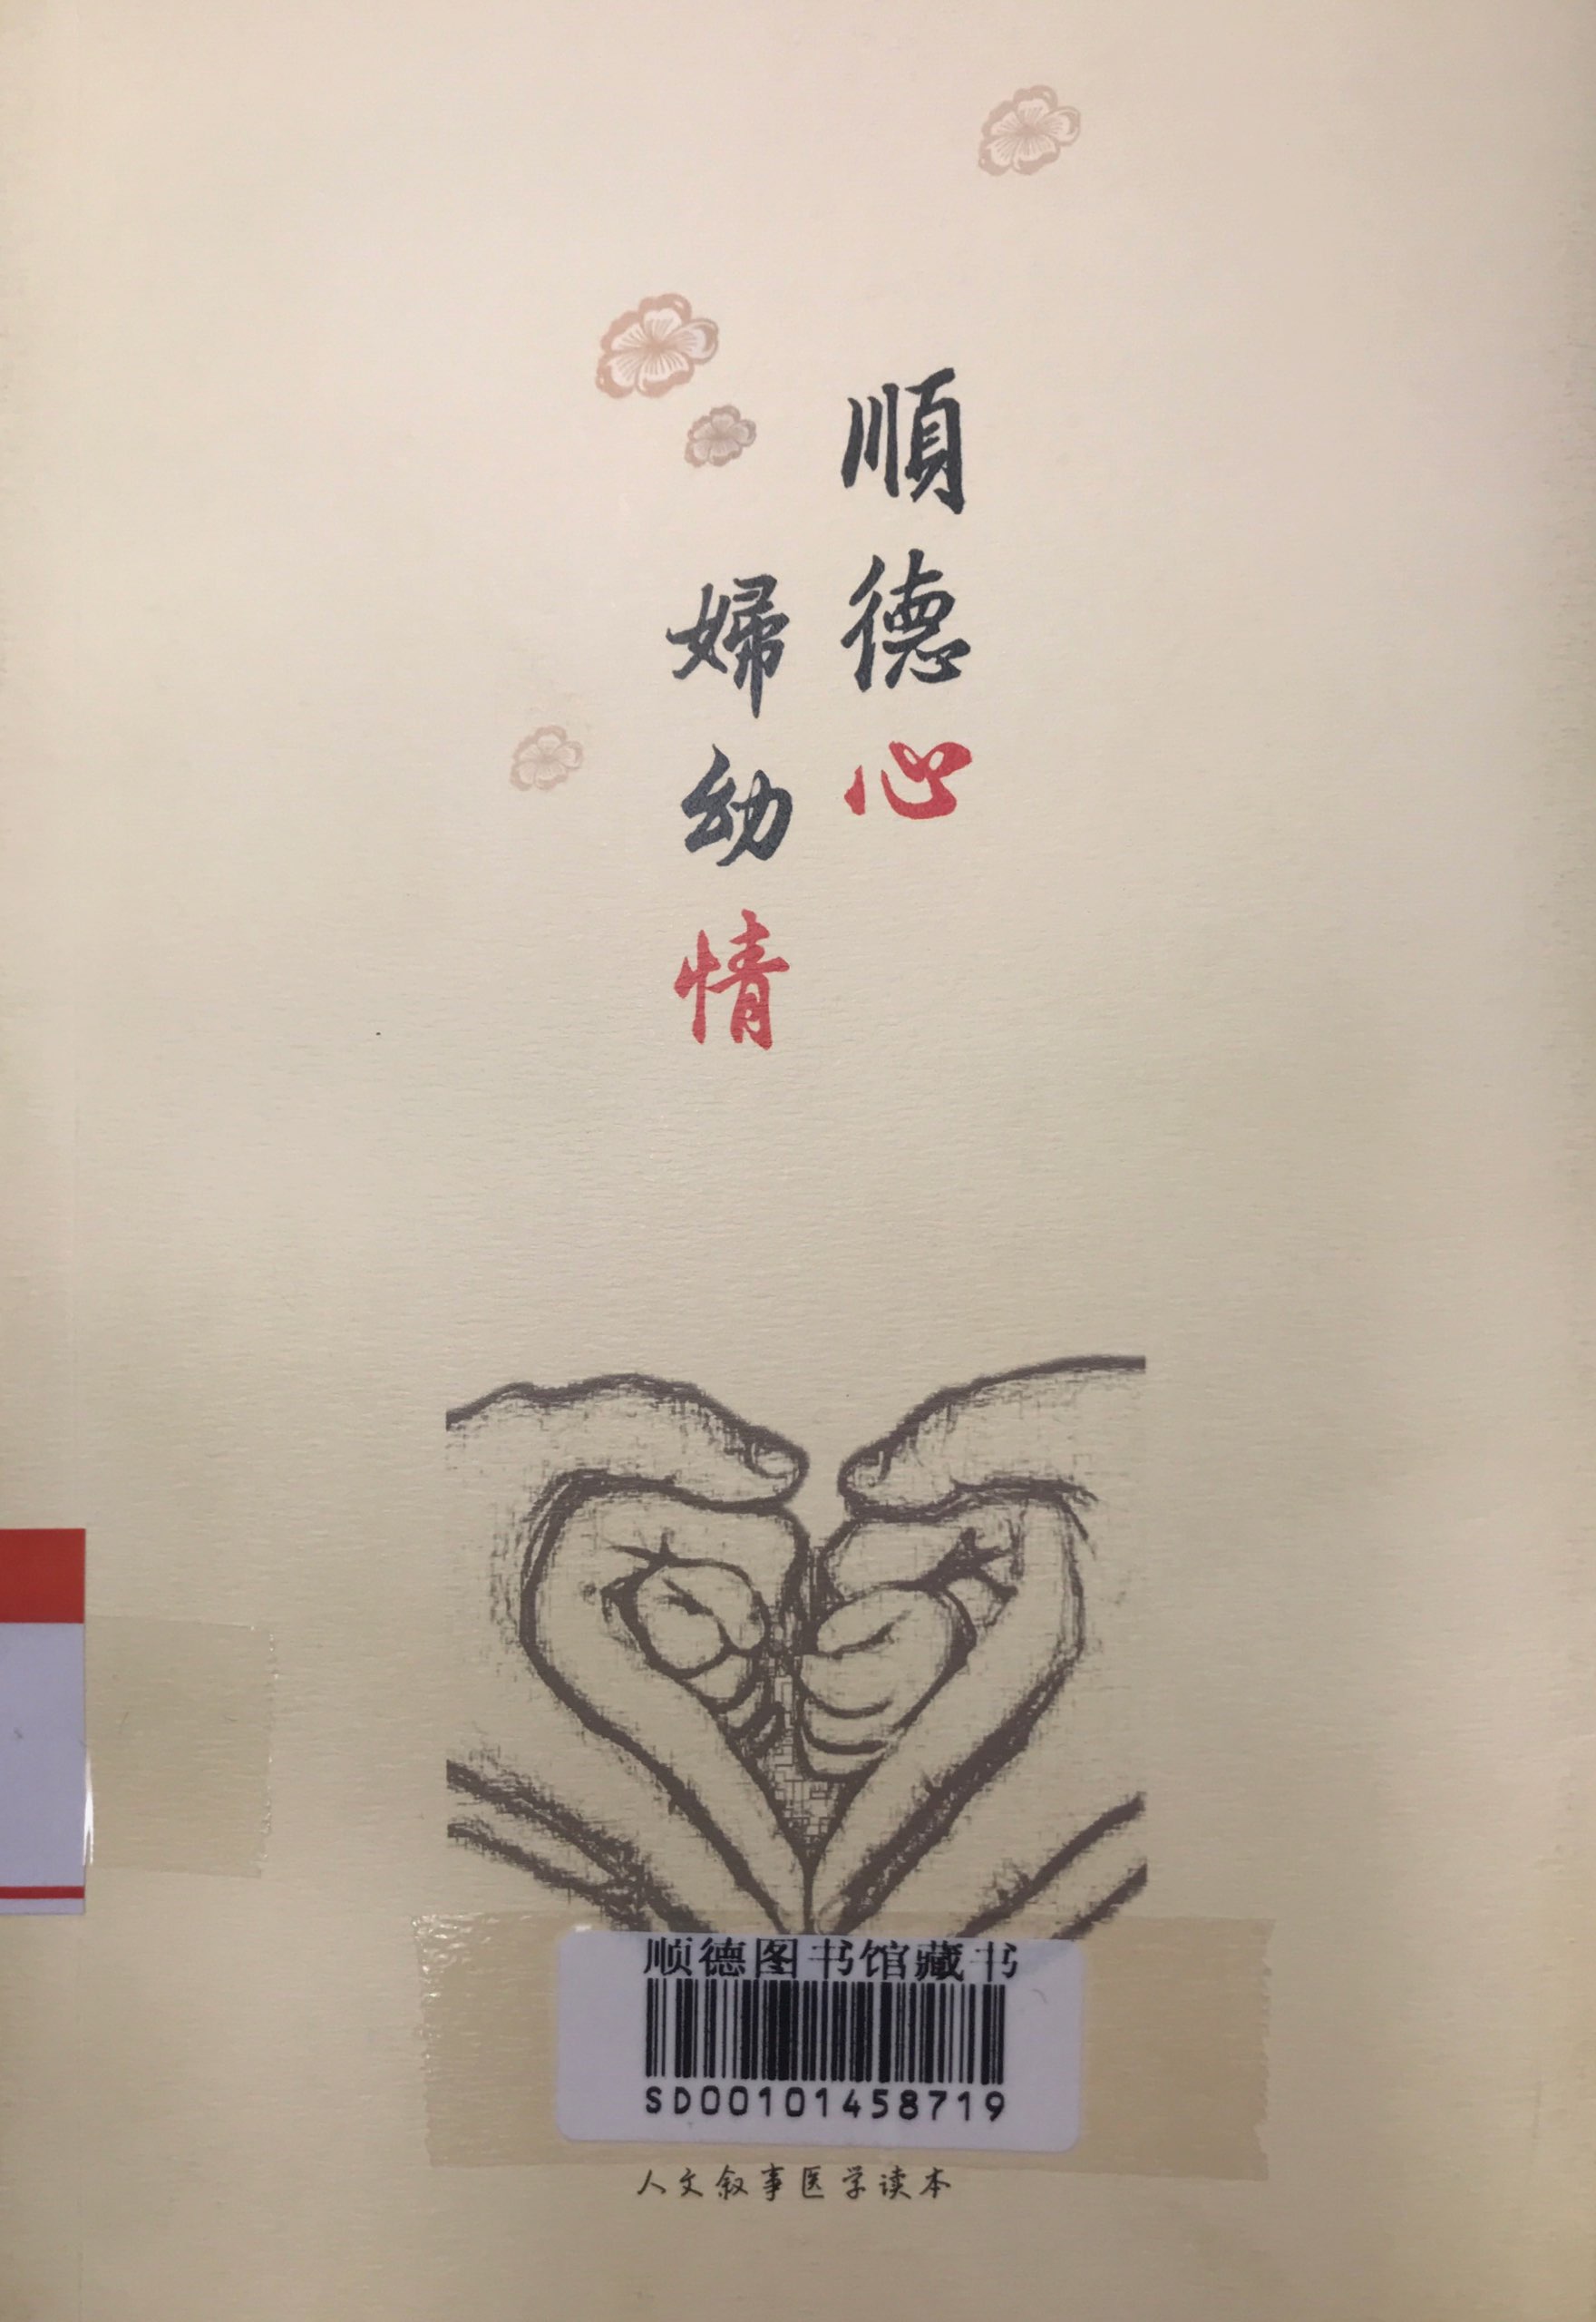 順德心
婦幼情
顺德图书馆藏书
SD00101458719
人文叙事医学读本